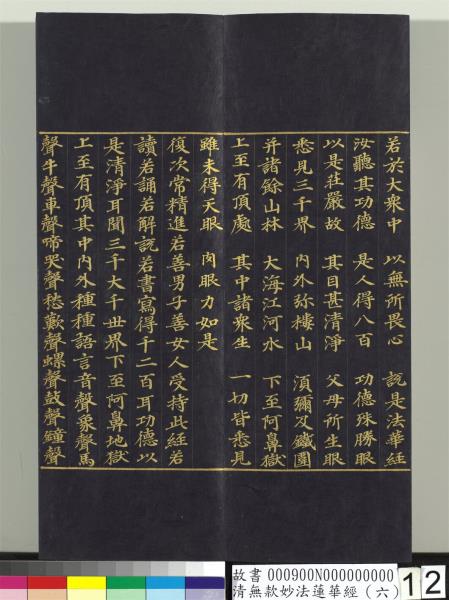 若於大衆中　以無所畏心　說是法華經
汝聽其功德　是人得八百　功德殊勝眼
以是莊嚴故　其目甚清淨　父母所生眼
悉見三千界　內外弥樓山　湏彌及鐵圍
并諸餘山林　大海江河水　下至阿鼻獄
上至有頂處　其中諸衆生　一切皆悉見
雖未得天眼　肉眼力如是
復次常精進若善男子善女人受持此經若
讀若誦若解說若書寫得千二百耳功德以
是清淨耳聞三千大千世界下至阿鼻地獄
上至有頂其中內外種種語言音聲象聲馬
聲牛聲車聲啼哭聲愁歎聲螺聲鼓聲鐘聲
故書 000900N000000000
清無款妙法蓮華經（六）
12